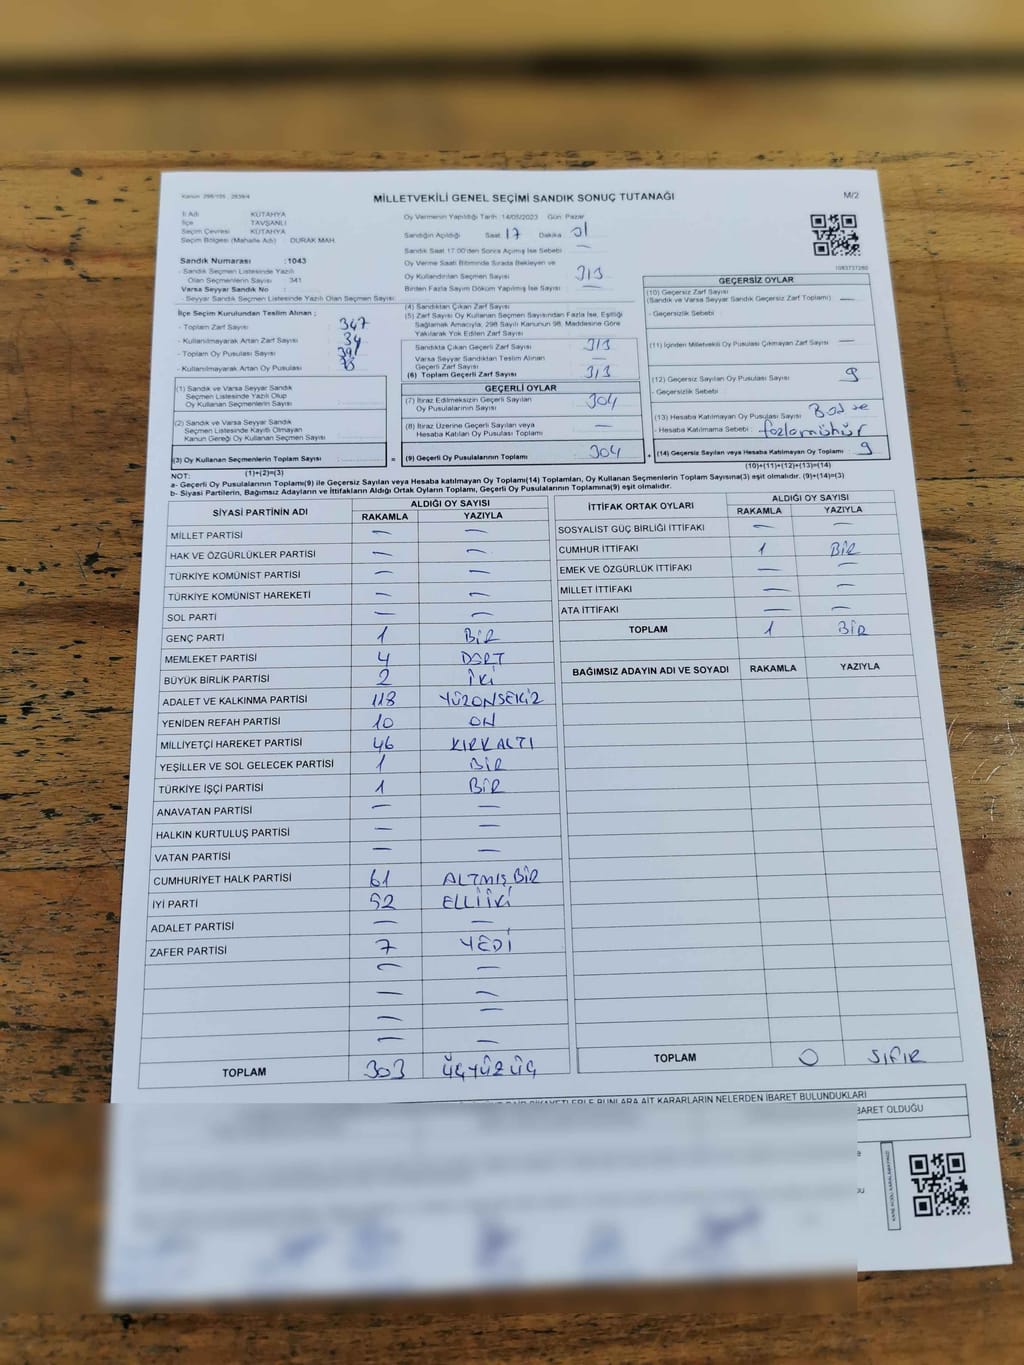 Kanun: 298/105 , 2839/4
MİLLETVEKİLİ GENEL SEÇİMİ SANDIK SONUÇ TUTANAĞI
M/2
İl Adı KÜTAHYA
İlçe TAVŞANLI
Seçim Çevresi KÜTAHYA
Seçim Bölgesi (Mahalle Adı) : DURAK MAH.
Sandık Numarası :1043
- Sandık Seçmen Listesinde Yazılı
Olan Seçmenlerin Sayısı : 341
Varsa Seyyar Sandık No :
- Seyyar Sandık Seçmen Listesinde Yazılı Olan Seçmen Sayısı:
İlçe Seçim Kurulundan Teslim Alınan ;
- Toplam Zarf Sayısı : 347
- Kullanılmayarak Artan Zarf Sayısı : 34
- Toplam Oy Pusulası Sayısı :
- Kullanılmayarak Artan Oy Pusulası :
(1) Sandık ve Varsa Seyyar Sandık
Seçmen Listesinde Yazılı Olup
Oy Kullanan Seçmenlerin Sayısı :
(2) Sandık ve Varsa Seyyar Sandık
Seçmen Listesinde Kayıtlı Olmayan
Kanun Gereği Oy Kullanan Seçmen Sayısı :
(3) Oy Kullanan Seçmenlerin Toplam Sayısı : =
(1)+(2)=(3)
Oy Vermenin Yapıldığı Tarih :14/05/2023 Gün: Pazar
Sandığın Açıldığı Saat 17 Dakika 01
Sandık Saat 17:00'den Sonra Açılmış İse Sebebi : —
Oy Verme Saati Bitiminde Sırada Bekleyen ve
Oy Kullandırılan Seçmen Sayısı : 313
Birden Fazla Sayım Döküm Yapılmış İse Sayısı : —
(4) Sandıktan Çıkan Zarf Sayısı :
(5) Zarf Sayısı Oy Kullanan Seçmen Sayısından Fazla İse, Eşitliği
Sağlamak Amacıyla, 298 Sayılı Kanunun 98. Maddesine Göre
Yakılarak Yok Edilen Zarf Sayısı :
Sandıkta Çıkan Geçerli Zarf Sayısı : 313
Varsa Seyyar Sandıktan Teslim Alınan
Geçerli Zarf Sayısı : —
(6) Toplam Geçerli Zarf Sayısı : 313
GEÇERLİ OYLAR
(7) İtiraz Edilmeksizin Geçerli Sayılan
Oy Pusulalarının Sayısı : 304
(8) İtiraz Üzerine Geçerli Sayılan veya
Hesaba Katılan Oy Pusulası Toplamı : —
(9) Geçerli Oy Pusulalarının Toplamı : 304 +
1083737280
GEÇERSİZ OYLAR
(10) Geçersiz Zarf Sayısı
(Sandık ve Varsa Seyyar Sandık Geçersiz Zarf Toplamı) : —
- Geçersizlik Sebebi :
(11) İçinden Milletvekili Oy Pusulası Çıkmayan Zarf Sayısı : —
(12) Geçersiz Sayılan Oy Pusulası Sayısı : 9
- Geçersizlik Sebebi :
(13) Hesaba Katılmayan Oy Pusulası Sayısı :
- Hesaba Katılmama Sebebi :
(14) Geçersiz Sayılan veya Hesaba Katılmayan Oy Toplamı : 9
(10)+(11)+(12)+(13)=(14)
NOT:
a- Geçerli Oy Pusulalarının Toplamı(9) ile Geçersiz Sayılan veya Hesaba katılmayan Oy Toplamı(14) Toplamları, Oy Kullanan Seçmenlerin Toplam Sayısına(3) eşit olmalıdır. (9)+(14)=(3)
b- Siyasi Partilerin, Bağımsız Adayların ve İttifakların Aldığı Ortak Oyların Toplamı, Geçerli Oy Pusulalarının Toplamına(9) eşit olmalıdır.
SİYASİ PARTİNİN ADI ALDIĞI OY SAYISI
RAKAMLA YAZIYLA
MİLLET PARTİSİ — —
HAK VE ÖZGÜRLÜKLER PARTİSİ — —
TÜRKİYE KOMÜNİST PARTİSİ — —
TÜRKİYE KOMÜNİST HAREKETİ — —
SOL PARTİ — —
GENÇ PARTİ 1 BİR
MEMLEKET PARTİSİ 4 DÖRT
BÜYÜK BİRLİK PARTİSİ 2 İKİ
ADALET VE KALKINMA PARTİSİ 118 YÜZONSEKİZ
YENİDEN REFAH PARTİSİ 10 ON
MİLLİYETÇİ HAREKET PARTİSİ 46 KIRKALTI
YEŞİLLER VE SOL GELECEK PARTİSİ 1 BİR
TÜRKİYE İŞÇİ PARTİSİ 1 BİR
ANAVATAN PARTİSİ — —
HALKIN KURTULUŞ PARTİSİ — —
VATAN PARTİSİ — —
CUMHURİYET HALK PARTİSİ 61 ALTMIŞ BİR
İYİ PARTİ 52 ELLİİKİ
ADALET PARTİSİ — —
ZAFER PARTİSİ 7 YEDİ
— —
— —
— —
— —
TOPLAM 303 ÜÇYÜZ ÜÇ
İTTİFAK ORTAK OYLARI ALDIĞI OY SAYISI
RAKAMLA YAZIYLA
SOSYALİST GÜÇ BİRLİĞİ İTTİFAKI — —
CUMHUR İTTİFAKI 1 BİR
EMEK VE ÖZGÜRLÜK İTTİFAKI — —
MİLLET İTTİFAKI — —
ATA İTTİFAKI — —
TOPLAM 1 BİR
BAĞIMSIZ ADAYIN ADI VE SOYADI RAKAMLA YAZIYLA
TOPLAM 0 SIFIR
ŞİKAYETLERLE BUNLARA AİT KARARLARIN NELERDEN İBARET BULUNDUKLARI
BARET OLDUĞU